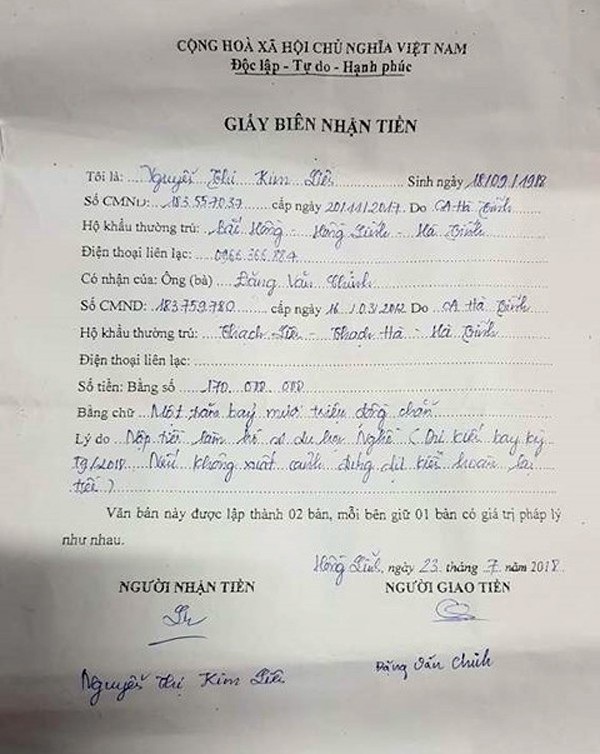 CỘNG HOÀ XÃ HỘI CHỦ NGHĨA VIỆT NAM
Độc lập - Tự do - Hạnh phúc
GIẤY BIÊN NHẬN TIỀN
Tôi là: Nguyễn Thị Kim Liên Sinh ngày 18/09/1988
Số CMND: 183.557.037 cấp ngày 20/11/2017. Do CA Hà Tĩnh
Hộ khẩu thường trú: Bắc Hồng - Hồng Lĩnh - Hà Tĩnh
Điện thoại liên lạc: 0966.366.884
Có nhận của: Ông (bà) Đặng Văn Chinh
Số CMND: 183.759.780 cấp ngày 16/03/2012 Do CA Hà Tĩnh
Hộ khẩu thường trú: Thạch Liên - Thạch Hà - Hà Tĩnh
Điện thoại liên lạc:
Số tiền: Bằng số 170.000.000
Bằng chữ Một trăm bảy mươi triệu đồng chẵn
Lý do Nộp tiền làm hồ sơ du học Nghề (Dự kiến bay kỳ
T9/2018 Nếu không xuất cảnh đúng dự kiến hoàn lại
tiền)
Văn bản này được lập thành 02 bản, mỗi bên giữ 01 bản có giá trị pháp lý
như nhau.
Hồng Lĩnh, ngày 23 tháng 7 năm 2018.
NGƯỜI NHẬN TIỀN NGƯỜI GIAO TIỀN
Nguyễn Thị Kim Liên Đặng Văn Chinh